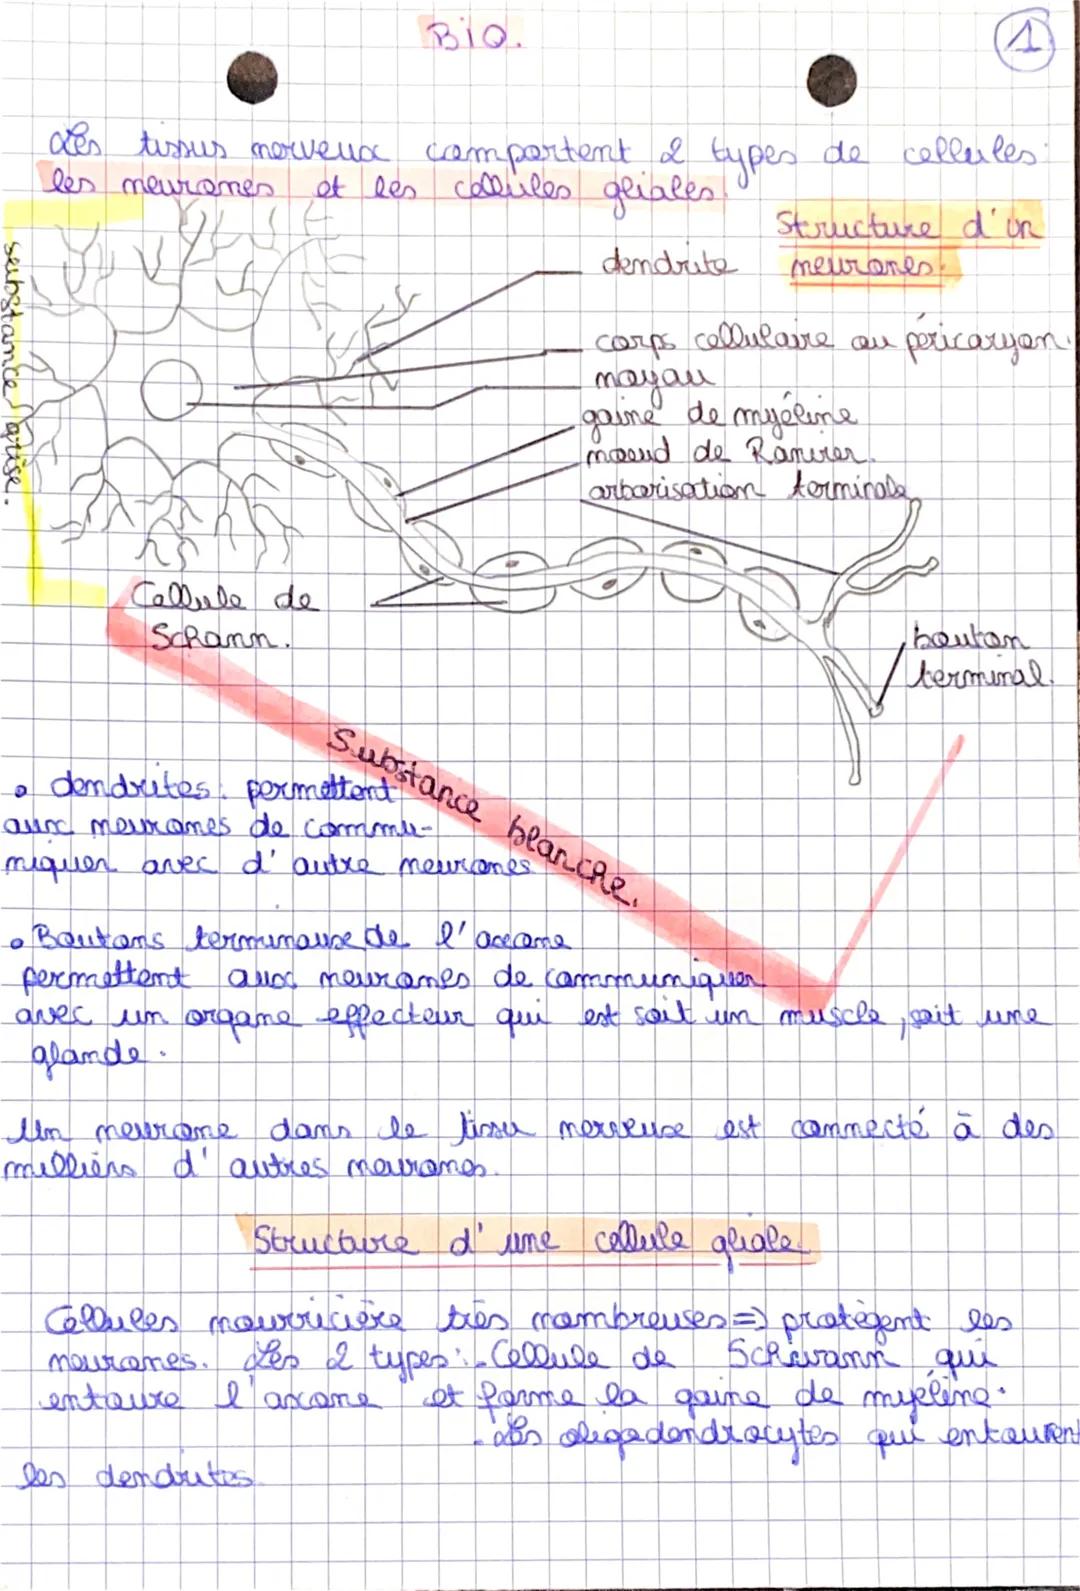 Bio.
1
Les tissus nerveux comportent 2 types de cellules :
les neurones et les cellules gliales.
Structure d'un
neurones.
dendrite
corps cellulaire ou péricaryon.
noyau
gaine de myéline
nœud de Ranvier.
arborisation terminale
substance grise.
Cellule de
Schann.
bouton
terminal.
Substance blanche.
• dendrites : permettent
aux neurones de commu-
niquer avec d'autre neurones
• Boutons terminaux de l'axone
permettent aux neurones de communiquer
avec un organe effecteur qui est soit un muscle, soit une
glande.
Un neurone dans le tissu nerveux est connecté à des
milliers d'autres neurones.
Structure d'une cellule gliale
Cellules nourricière très nombreuses => protègent les
neurones. Les 2 types : - Cellule de Schwann qui
entoure l'axone et forme la gaine de myéline.
- Les oligodendrocytes qui entourent
les dendrites.